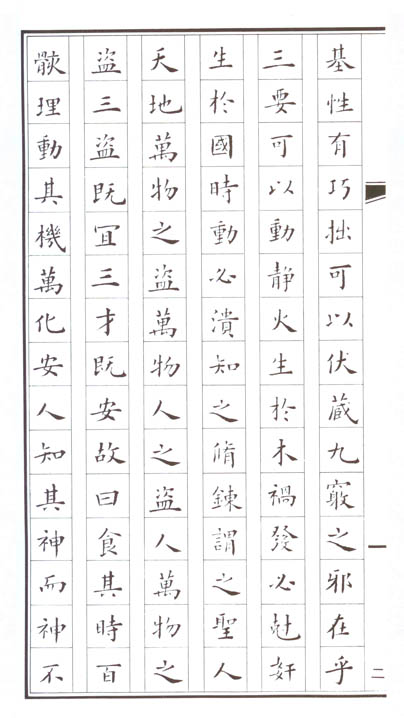 基性有巧拙可以伏蔵九竅之邪在乎
三要可以動靜火生於木禍發必尅奸
生於國時動必潰知之脩鍊謂之聖人
天地萬物之盜萬物人之盜人萬物之
盜三盜既冝三才既安故曰食其時百
骸理動其機萬化安人知其神而神不
二